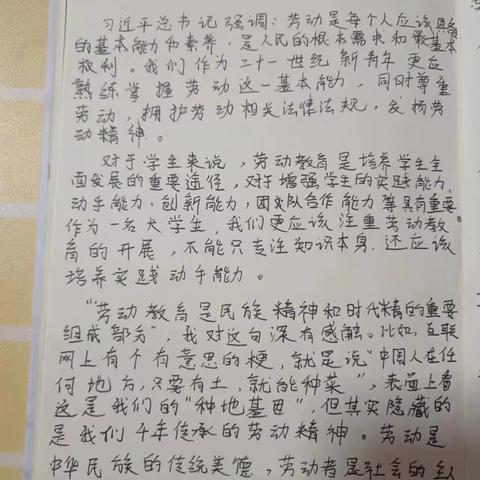 习近平总书记强调：劳动是每个人应该具备
的基本能力和素养，是人民的根本需求和最基本
权利。我们作为二十一世纪新青年更应
熟练掌握劳动这一基本能力，同时尊重
劳动，拥护劳动相关法律法规，发扬劳
动精神。
对于学生来说，劳动教育是培养学生全
面发展的重要途径，对于增强学生的实践能力，
动手能力、创新能力，团队合作能力等具有重要。
作为一名大学生，我们更应该注重劳动教
育的开展，不能只专注知识本身，还应该
培养实践动手能力。
“劳动教育是民族精神和时代精的重要
组成部分”，我对这句深有感触。比如，互联
网上有个有意思的梗，就是说“中国人在任
何地方，只要有土，就能种菜”，表面上看
这是我们的“种地基因”，但其实隐藏的
是我们千年传承的劳动精神。劳动是
中华民族的传统美德，劳动者是社会的